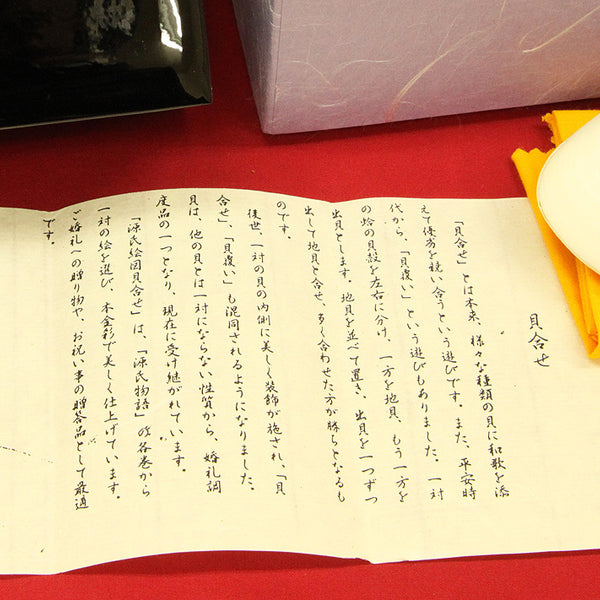 貝合せ
「貝合せ」とは本来、様々な種類の貝に和歌を添
えて優劣を競い合うという遊びです。また、平安時
代から、「貝覆い」という遊びもありました。一対
の蛤の貝殻を左右に分け、一方を地貝、もう一方を
出貝とします。地貝を並べて置き、出貝を一つずつ
出して地貝と合せ、多く合わせた方が勝ちとなるも
のです。
後世、一対の貝の内側に美しく装飾が施され、「貝
合せ」、「貝覆い」も混同されるようになりました。
貝は、他の貝とは一対にならない性質から、婚礼調
度品の一つとなり、現在に受け継がれています。
「源氏絵図貝合せ」は、「源氏物語」の各巻から
一対の絵を選び、本金彩で美しく仕上げています。
ご婚礼への贈り物や、お祝い事の贈答品として最適
です。